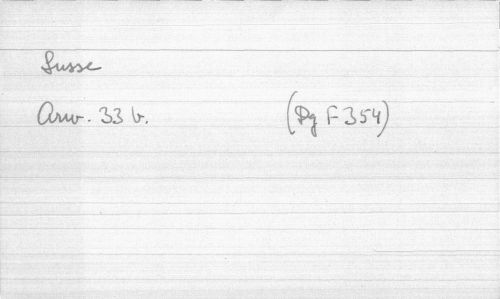 Susse
Arw. 33 b. (Dg F 354)